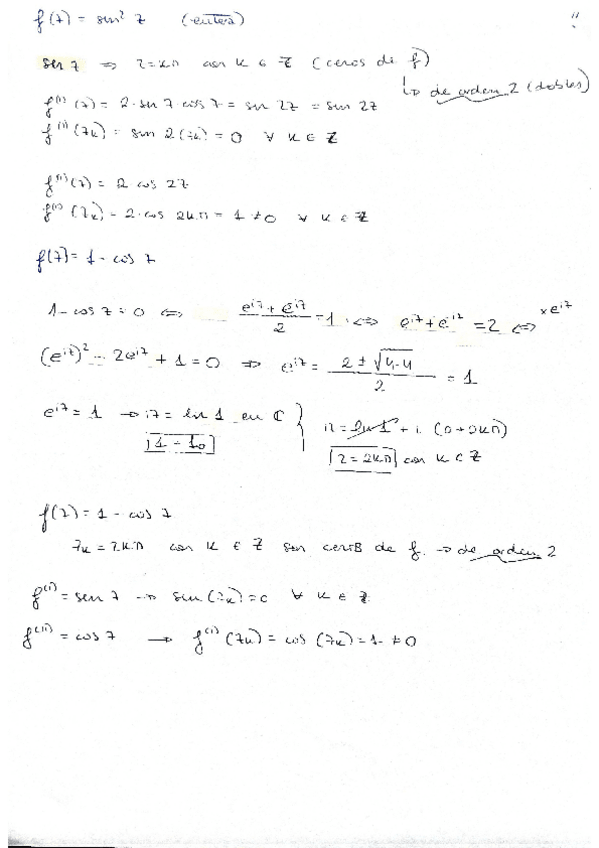 f(z) = sin² z (entera)
sen z ⇒ z = kπ con k ∈ Z (ceros de f)
↳ de orden 2 (dobles)
f⁽ⁱ⁾(z) = 2·sin z·cos z = sin 2z = sin 2z
f⁽ⁱ⁾(zₖ) = sin 2(zₖ) = 0 ∀ k ∈ Z
f⁽ⁱⁱ⁾(z) = 2 cos 2z
f⁽ⁱⁱ⁾(zₖ) = 2·cos 2kπ = 1 ≠ 0 ∀ k ∈ Z
f(z) = 1 - cos z
1 - cos z = 0 ⇔ (e^{iz} + e^{-iz})/2 = 1 ⇔ e^{iz} + e^{-iz} = 2 ⇔ ×e^{iz}
(e^{iz})² - 2e^{iz} + 1 = 0 ⇒ e^{iz} = (2 ± √(4-4))/2 = 1
e^{iz} = 1 → iz = ln 1 en C } iz = ln 1 + i (0 + 2kπ)
|1 = 1₀| |z = 2kπ| con k ∈ Z
f(z) = 1 - cos z
zₖ = 2kπ con k ∈ Z son ceros de f. → de orden 2
f⁽ⁱ⁾ = sen z → sin(zₖ) = 0 ∀ k ∈ Z
f⁽ⁱⁱ⁾ = cos z → f⁽ⁱ⁾(zₖ) = cos(zₖ) = 1 ≠ 0